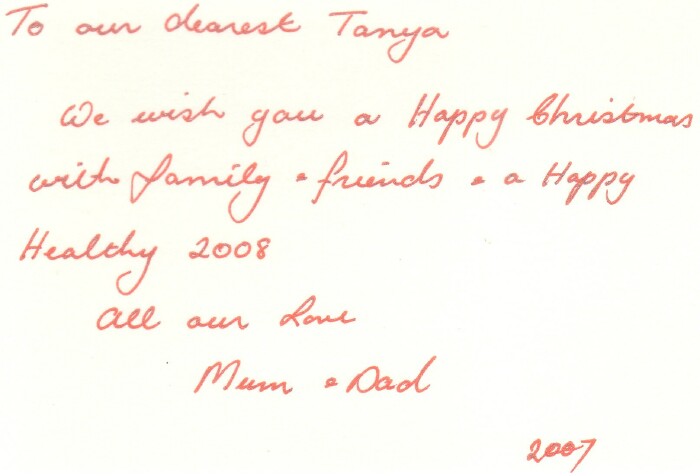 To our dearest Tanya
We wish you a Happy Christmas
with family & friends & a Happy
Healthy 2008
All our Love
Mum & Dad
2007